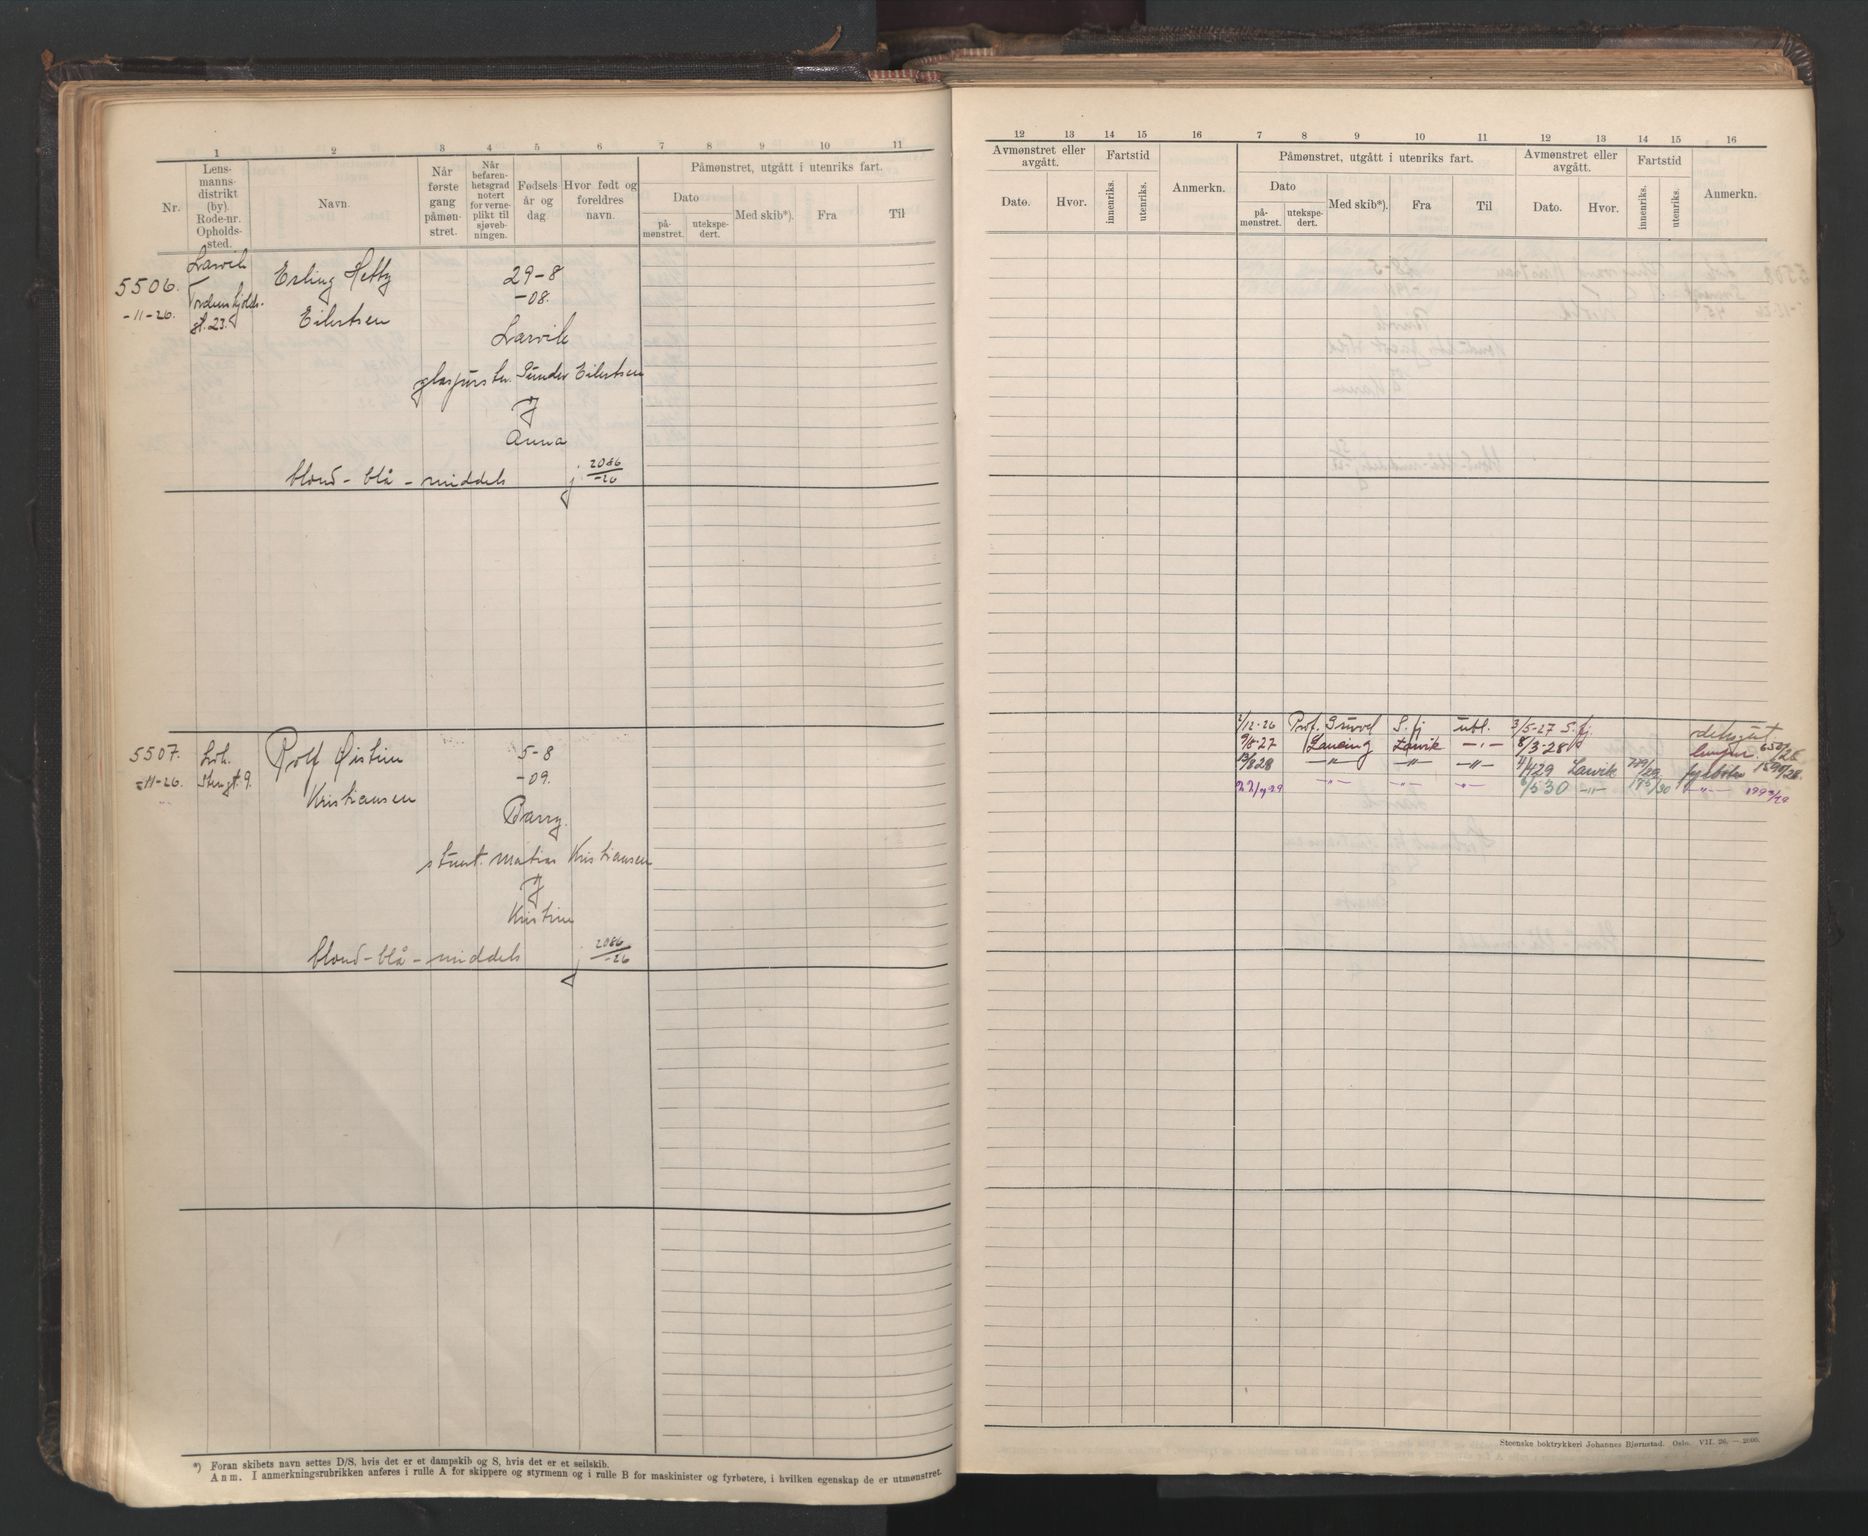 1 2 3 4 5 6 7 8 9 10 11
Nr.
Lens-
manns-
distrikt
(by).
Rode-nr.
Opholds-
sted.
Navn.
Når
første
gang
påmøn-
stret.
Når
befaren-
hetsgrad
notert
for verne-
plikt til
sjøveb-
ningen.
Fødsels
år og
dag.
Hvor født og
foreldres
navn.
Påmønstret, utgått i utenriks fart.
Dato
på-
mønstret.
utekspe-
dert.
Med skib*).
Fra
Til
5506.
-11-26.
Larvik
Tordenskjolds-
gt. 23.
Erling Hetty
Eilertsen
29-8
-08.
Larvik
Sünder Eilertsen
og
Anna
blond - blå - middels
j. 2086/-26
5507.
-11-26.
Lvk.
Stengt. 9.
Rolf Øistin
Kristiansen
5-8
-09.
Barry.
stuert. Matias Kristiansen
og
Kristine
blond - blå - middels
j. 2086/-26
*) Foran skibets navn settes D/S, hvis det er et dampskib og S, hvis det er et seilskib.
Anm. I anmerkningsrubrikken anføres i rulle A for skippere og styrmenn og i rulle B for maskinister og fyrbøtere, i hvilken egenskap de er utmønstret.
12 13 14 15 16 7 8 9 10 11 12 13 14 15 16
Avmønstret eller
avgått.
Dato.
Hvor.
Fartstid
innenriks.
utenriks.
Anmerkn.
Påmønstret, utgått i utenriks fart.
Dato
på-
mønstret.
utekspe-
dert.
Med skib*).
Fra
Til
Avmønstret eller
avgått.
Dato.
Hvor.
Fartstid
innenriks.
utenriks.
Anmerkn.
2/12-26 Prof. Gruvel S.fj ubl. 3/5-27 S.fj. dekksgut
9/8-27 Lancing Larvik -"- 8/3-28 lemper. 650/28
13/828 -"- -"- -"- 4/429 Larvik 779/29 fyrbøter 1590/28
22/729 -"- -"- -"- 6/530 -"- 185/30 -"- 1994/29
Steenske boktrykkeri Johannes Bjørnstad. Oslo. VII. 26. — 2000.